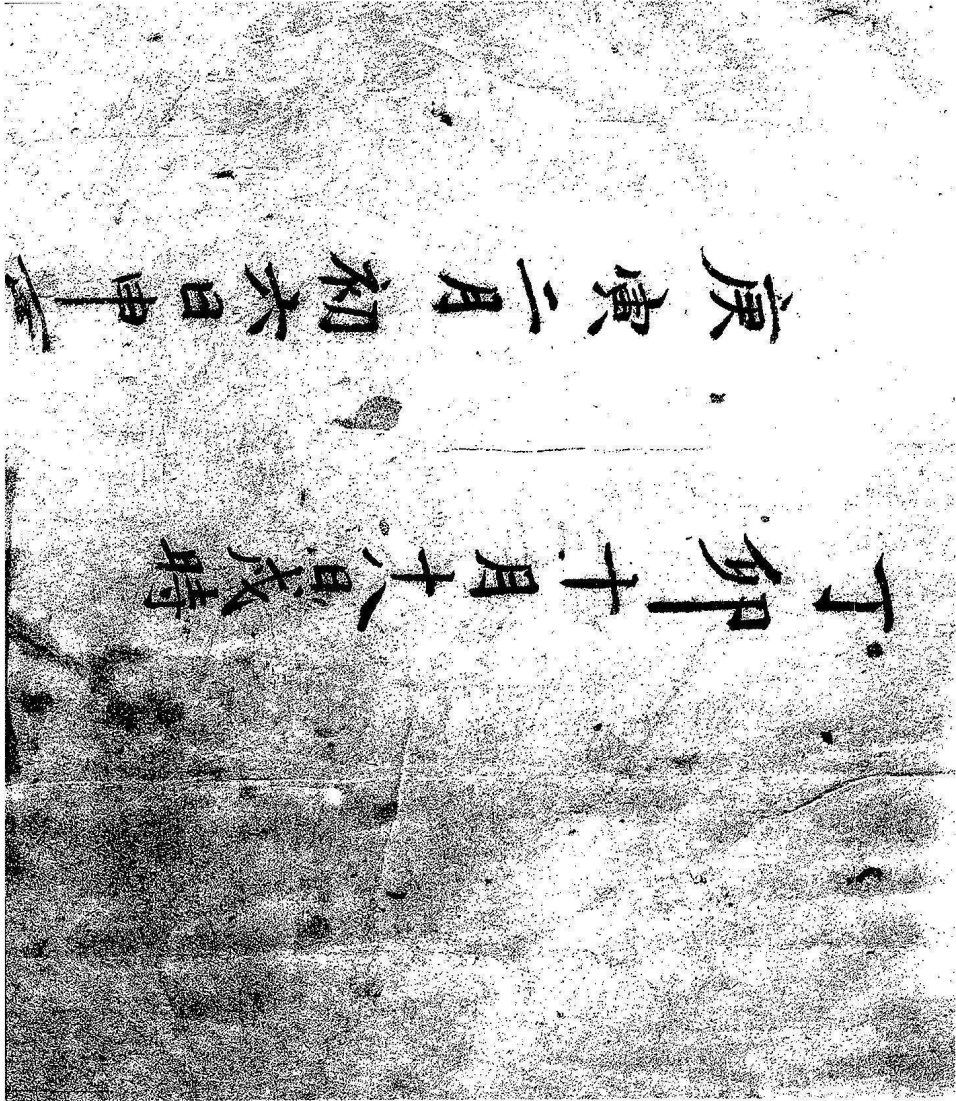 丁卯十月十八日戌時
庚寅二月初六日申